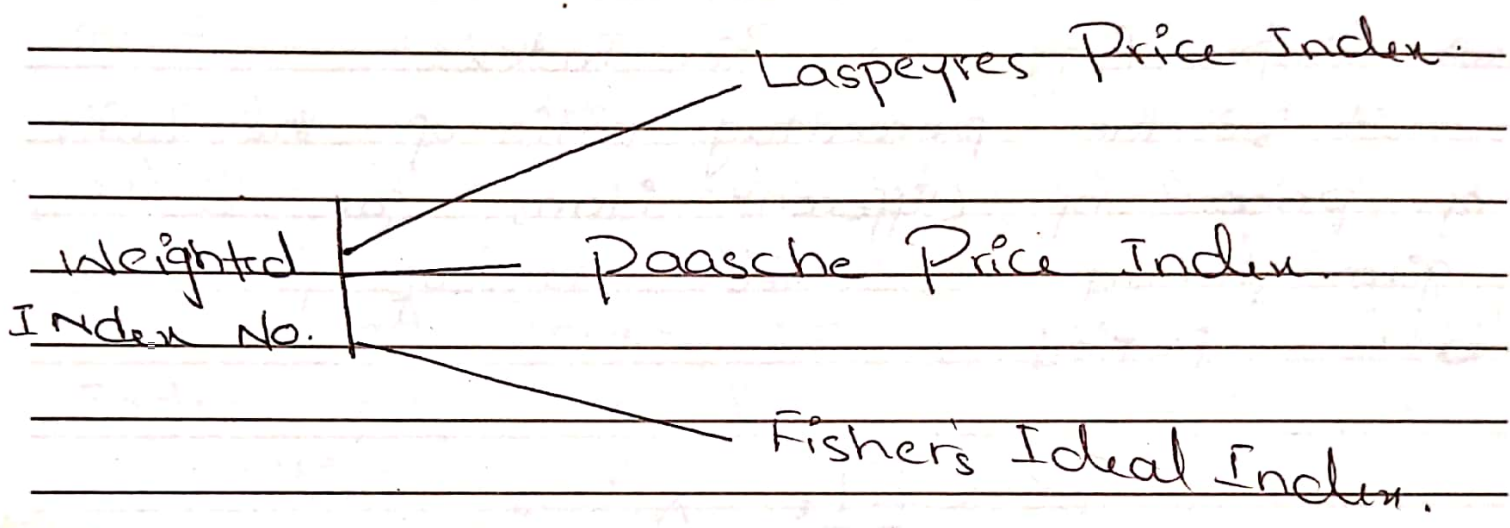 Laspeyres Price Index.
Weighted
Index No.
Paasche Price Index.
Fisher's Ideal Index.